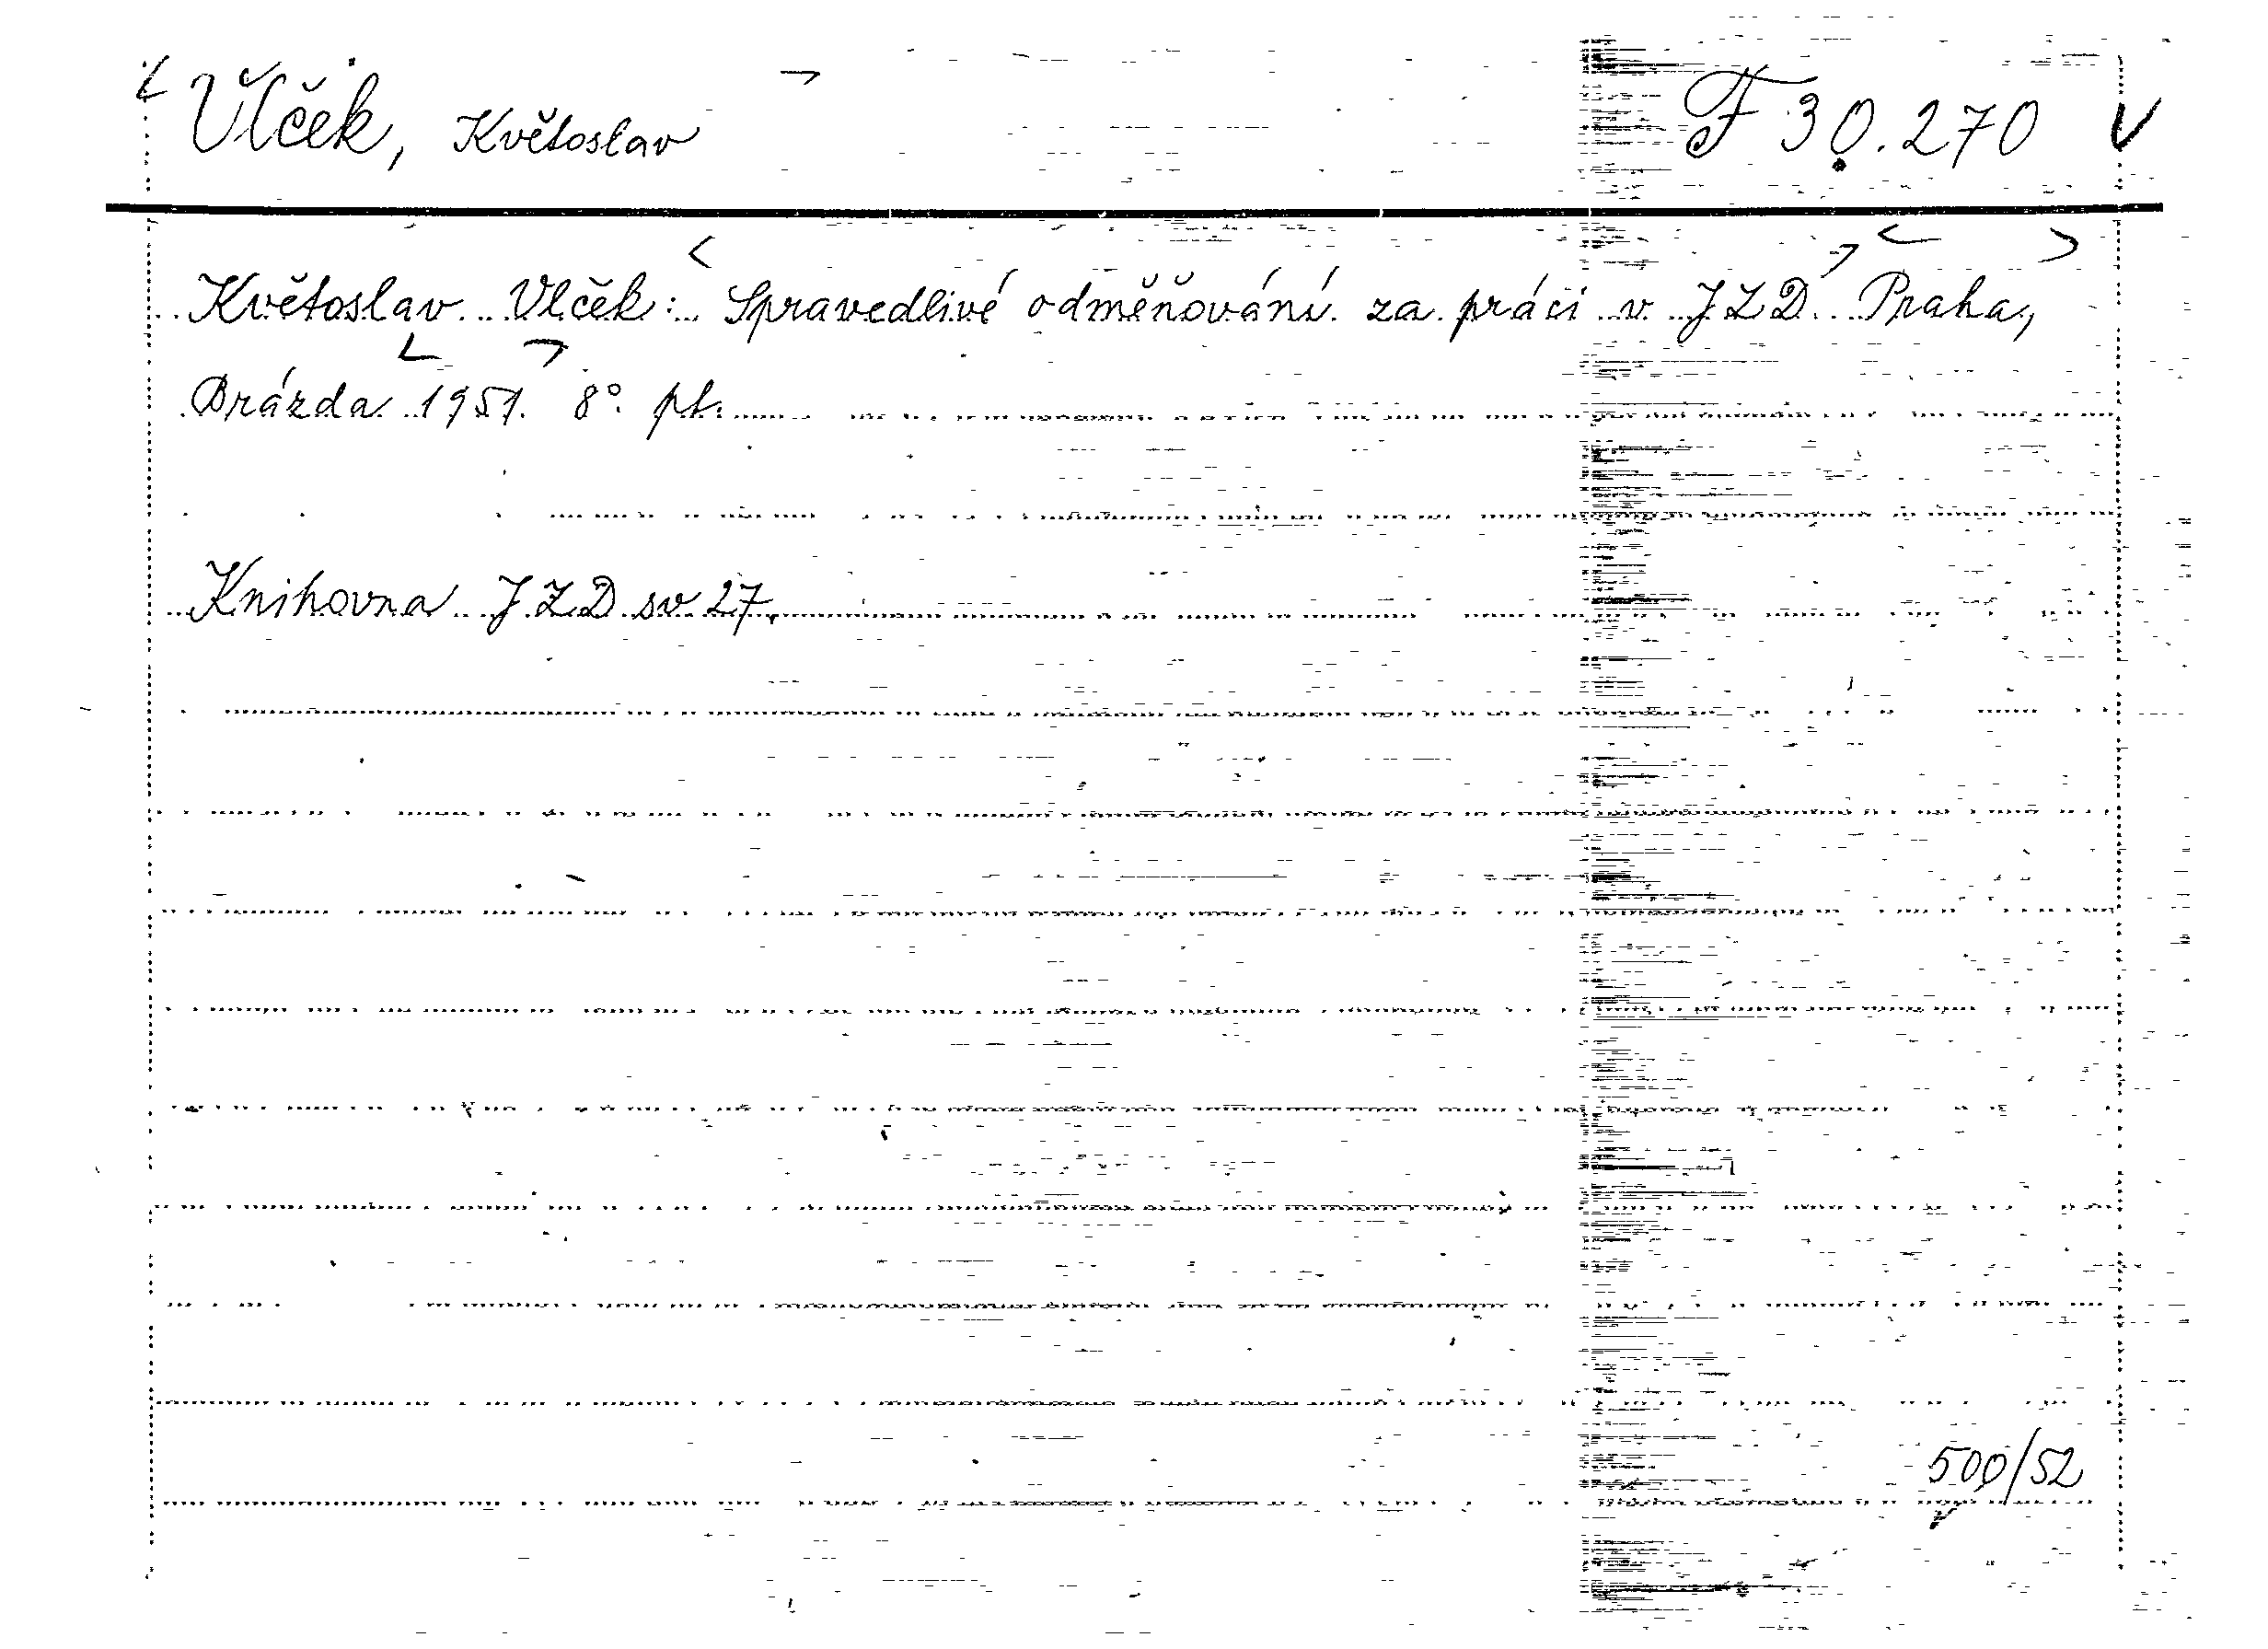 Vlček, Květoslav F 30.270 V
Květoslav Vlček: Spravedlivé odměňování za práci v JZD. Praha,
Brázda 1951. 8°. pt.
Knihovna JZD sv. 27.
500/52